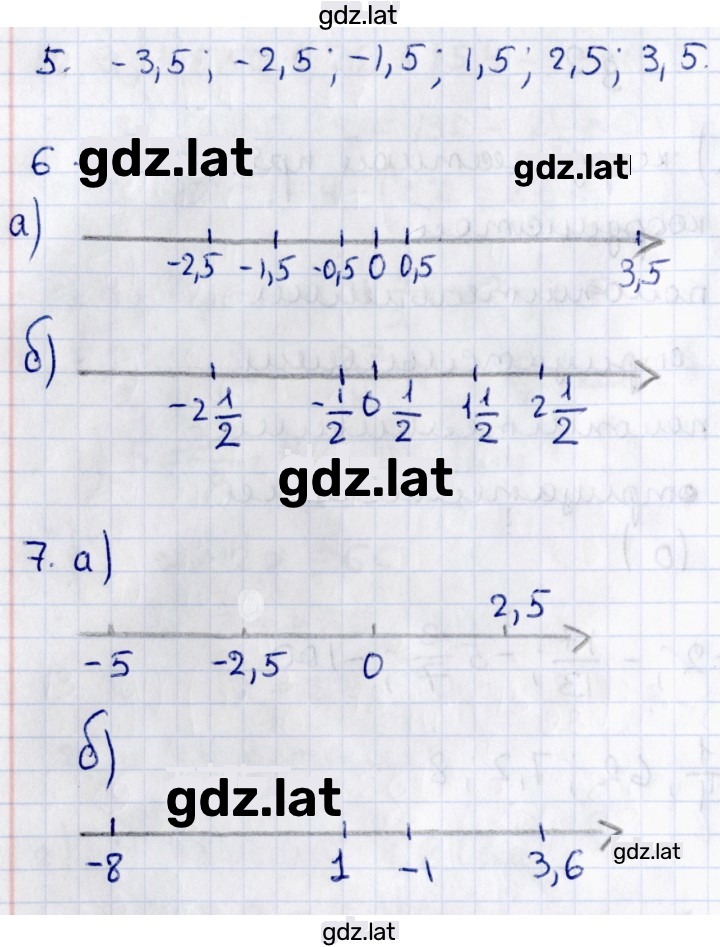 gdz.lat
5. -3,5; -2,5; -1,5; 1,5; 2,5; 3,5.
6. gdz.lat gdz.lat
а)
-2,5 -1,5 -0,5 0 0,5 3,5
б)
-2 1/2 -1/2 0 1/2 1 1/2 2 1/2
gdz.lat
7. а)
2,5
-5 -2,5 0
б)
gdz.lat
-8 1 -1 3,6
gdz.lat
gdz.lat